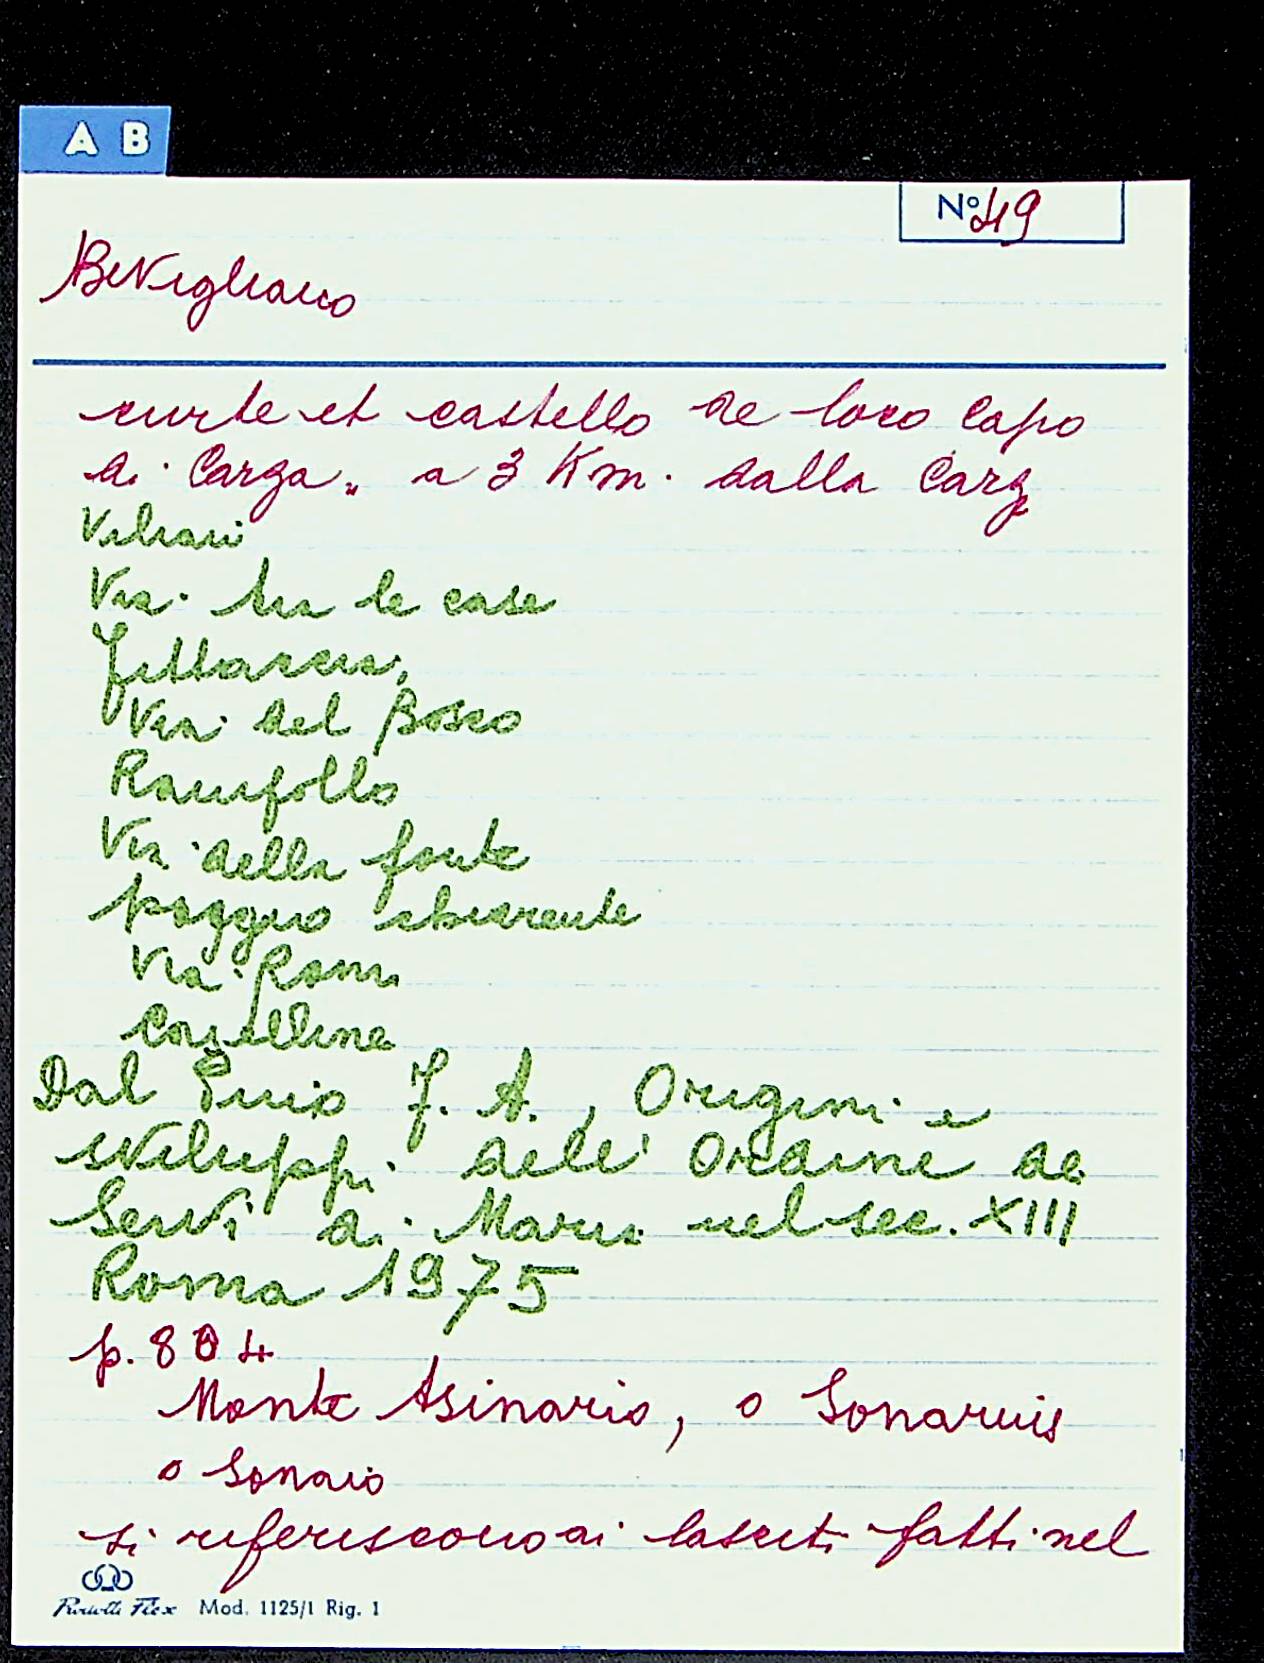 A B
N° 49
Bivigliano
curte et castello de loco Capo
di Carza „ a 3 Km. dalla Carz
Viliani
Via tra le case
Via del Bosco
Ramifollo
Via della fonte
poggio
Via Roma
Caselline
Dal Pino F. A., Origini e
sviluppi dell' Ordine dei
Servi di Maria nel sec. XIII
Roma 1975
p. 804
Monte Asinario, o Sonaruis
o Sonaio
si riferiscono ai lasciti fatti nel
Mod. 1125/1 Rig. 1